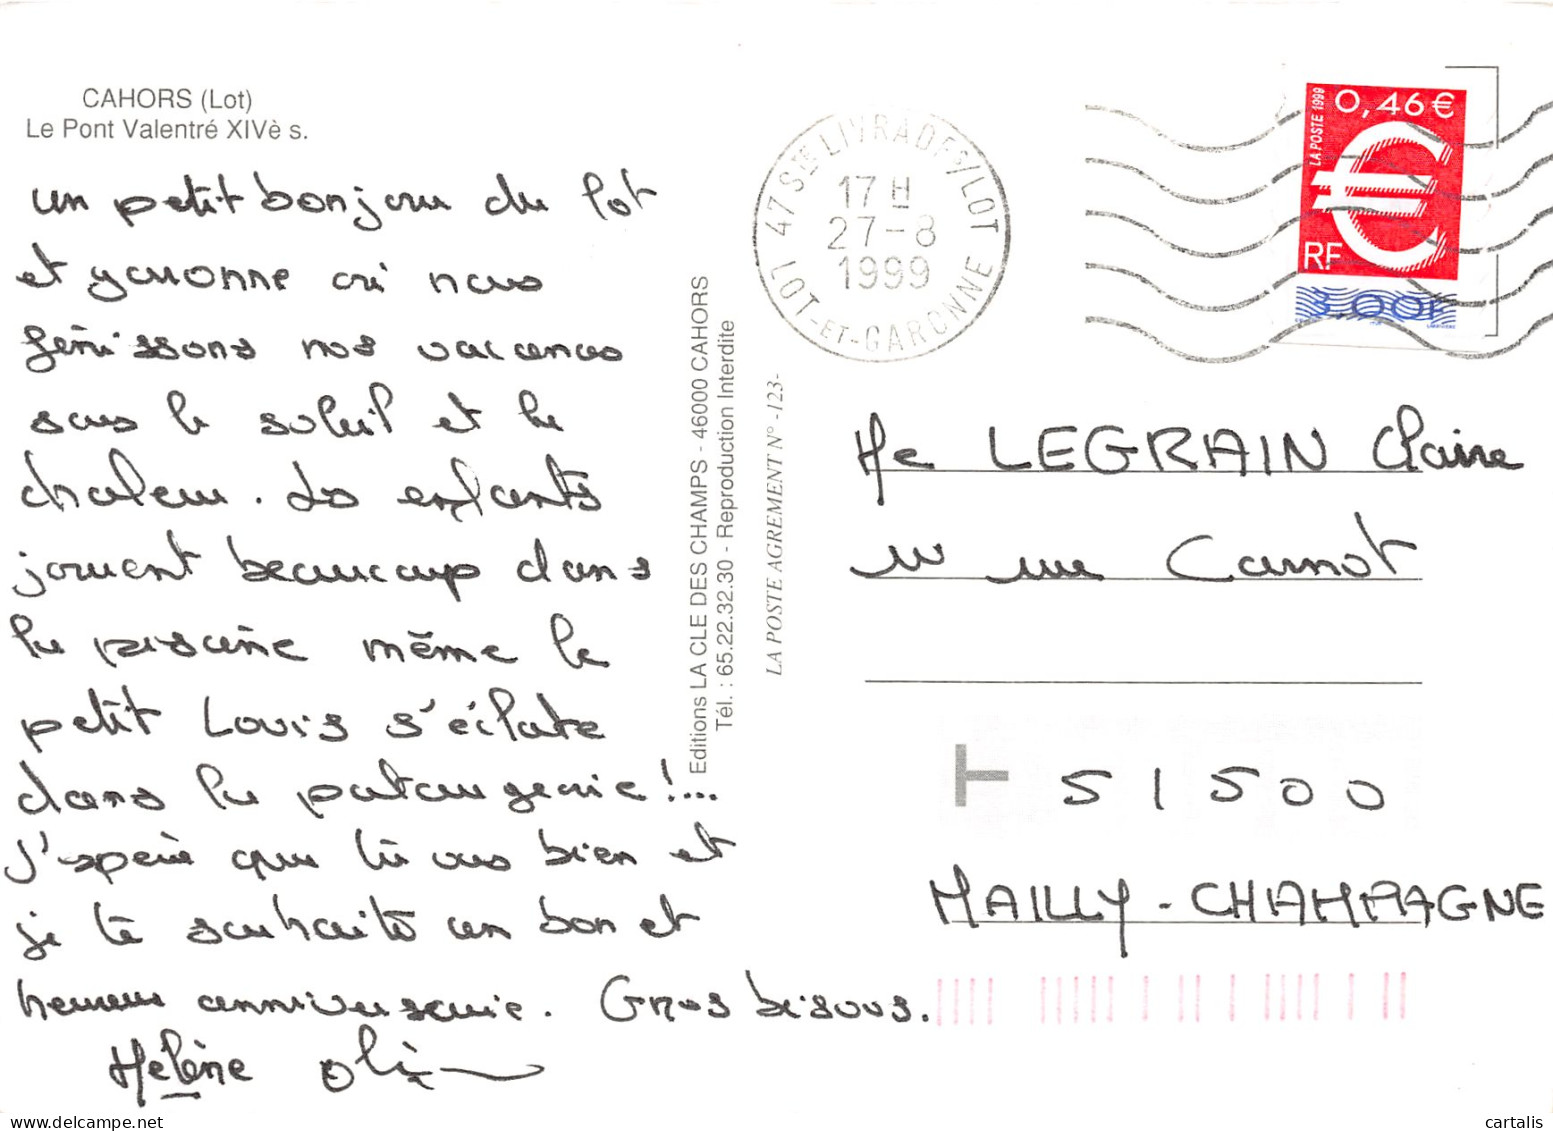 CAHORS (Lot)
Le Pont Valentré XIVè s.
un petit bonjour du lot
et garonne où nous
finissons nos vacances
sous le soleil et la
chaleur. Les enfants
jouent beaucoup dans
la piscine même le
petit Louis s'éclate
dans la pataugerie !...
J'espère que tu vas bien et
je te souhaite un bon et
heureux anniversaire. Gros bisous.
Hélène
Editions LA CLE DES CHAMPS - 46000 CAHORS
Tél. : 65.22.32.30 - Reproduction Interdite
LA POSTE AGREMENT N° -123-
47 STE LIVRADE S/LOT
17 H
27-8
1999
LOT-ET-GARONNE
LA POSTE 1999
0,46 €
RF
3,00F
Me LEGRAIN Claire
rue Carnot
51500
MAILLY-CHAMPAGNE
cartalis